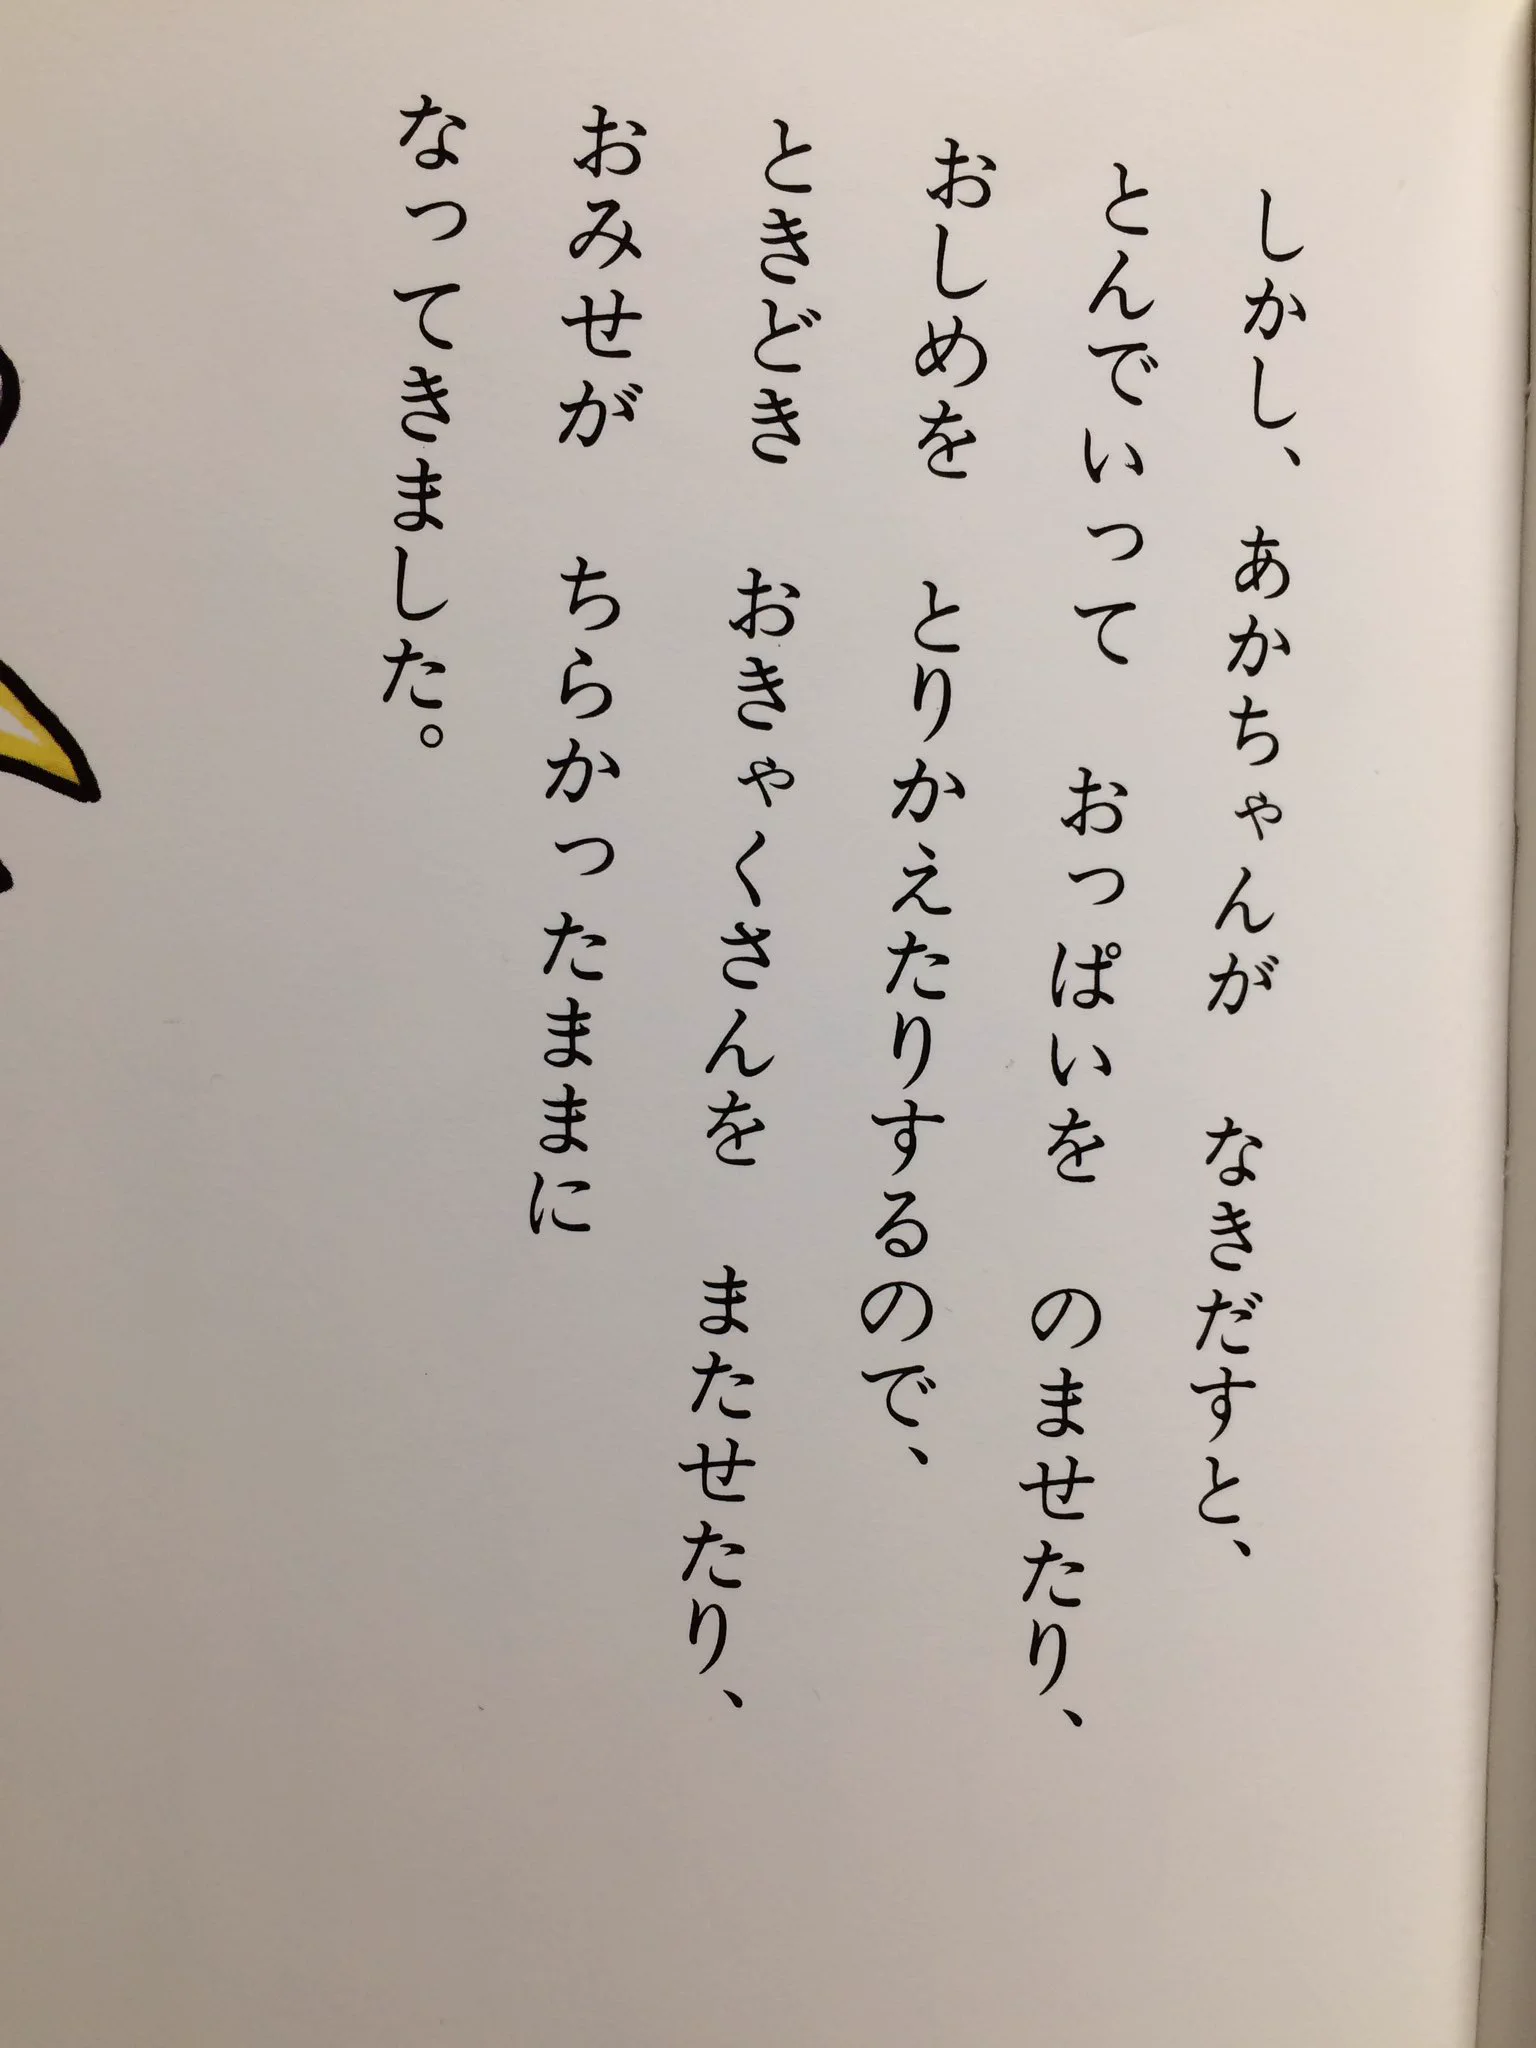 しかし、あかちゃんが　なきだすと、
とんでいって　おっぱいを　のませたり、
おしめを　とりかえたりするので、
ときどき　おきゃくさんを　またせたり、
おみせが　ちらかったままに
なってきました。